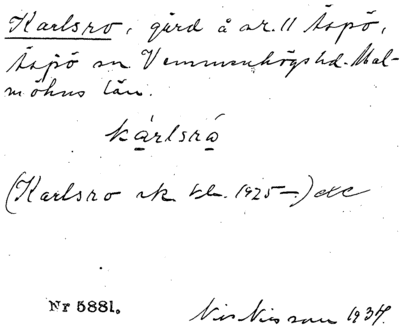 Karlsro, gård å nr. 11 Äspö,
Äspö sn Vemmenhögs hd. Mal-
möhus län.
kárlsrá
(Karlsro rk bl. 1925–) etc
Nr 5881.
Nils Nilsson 1934.